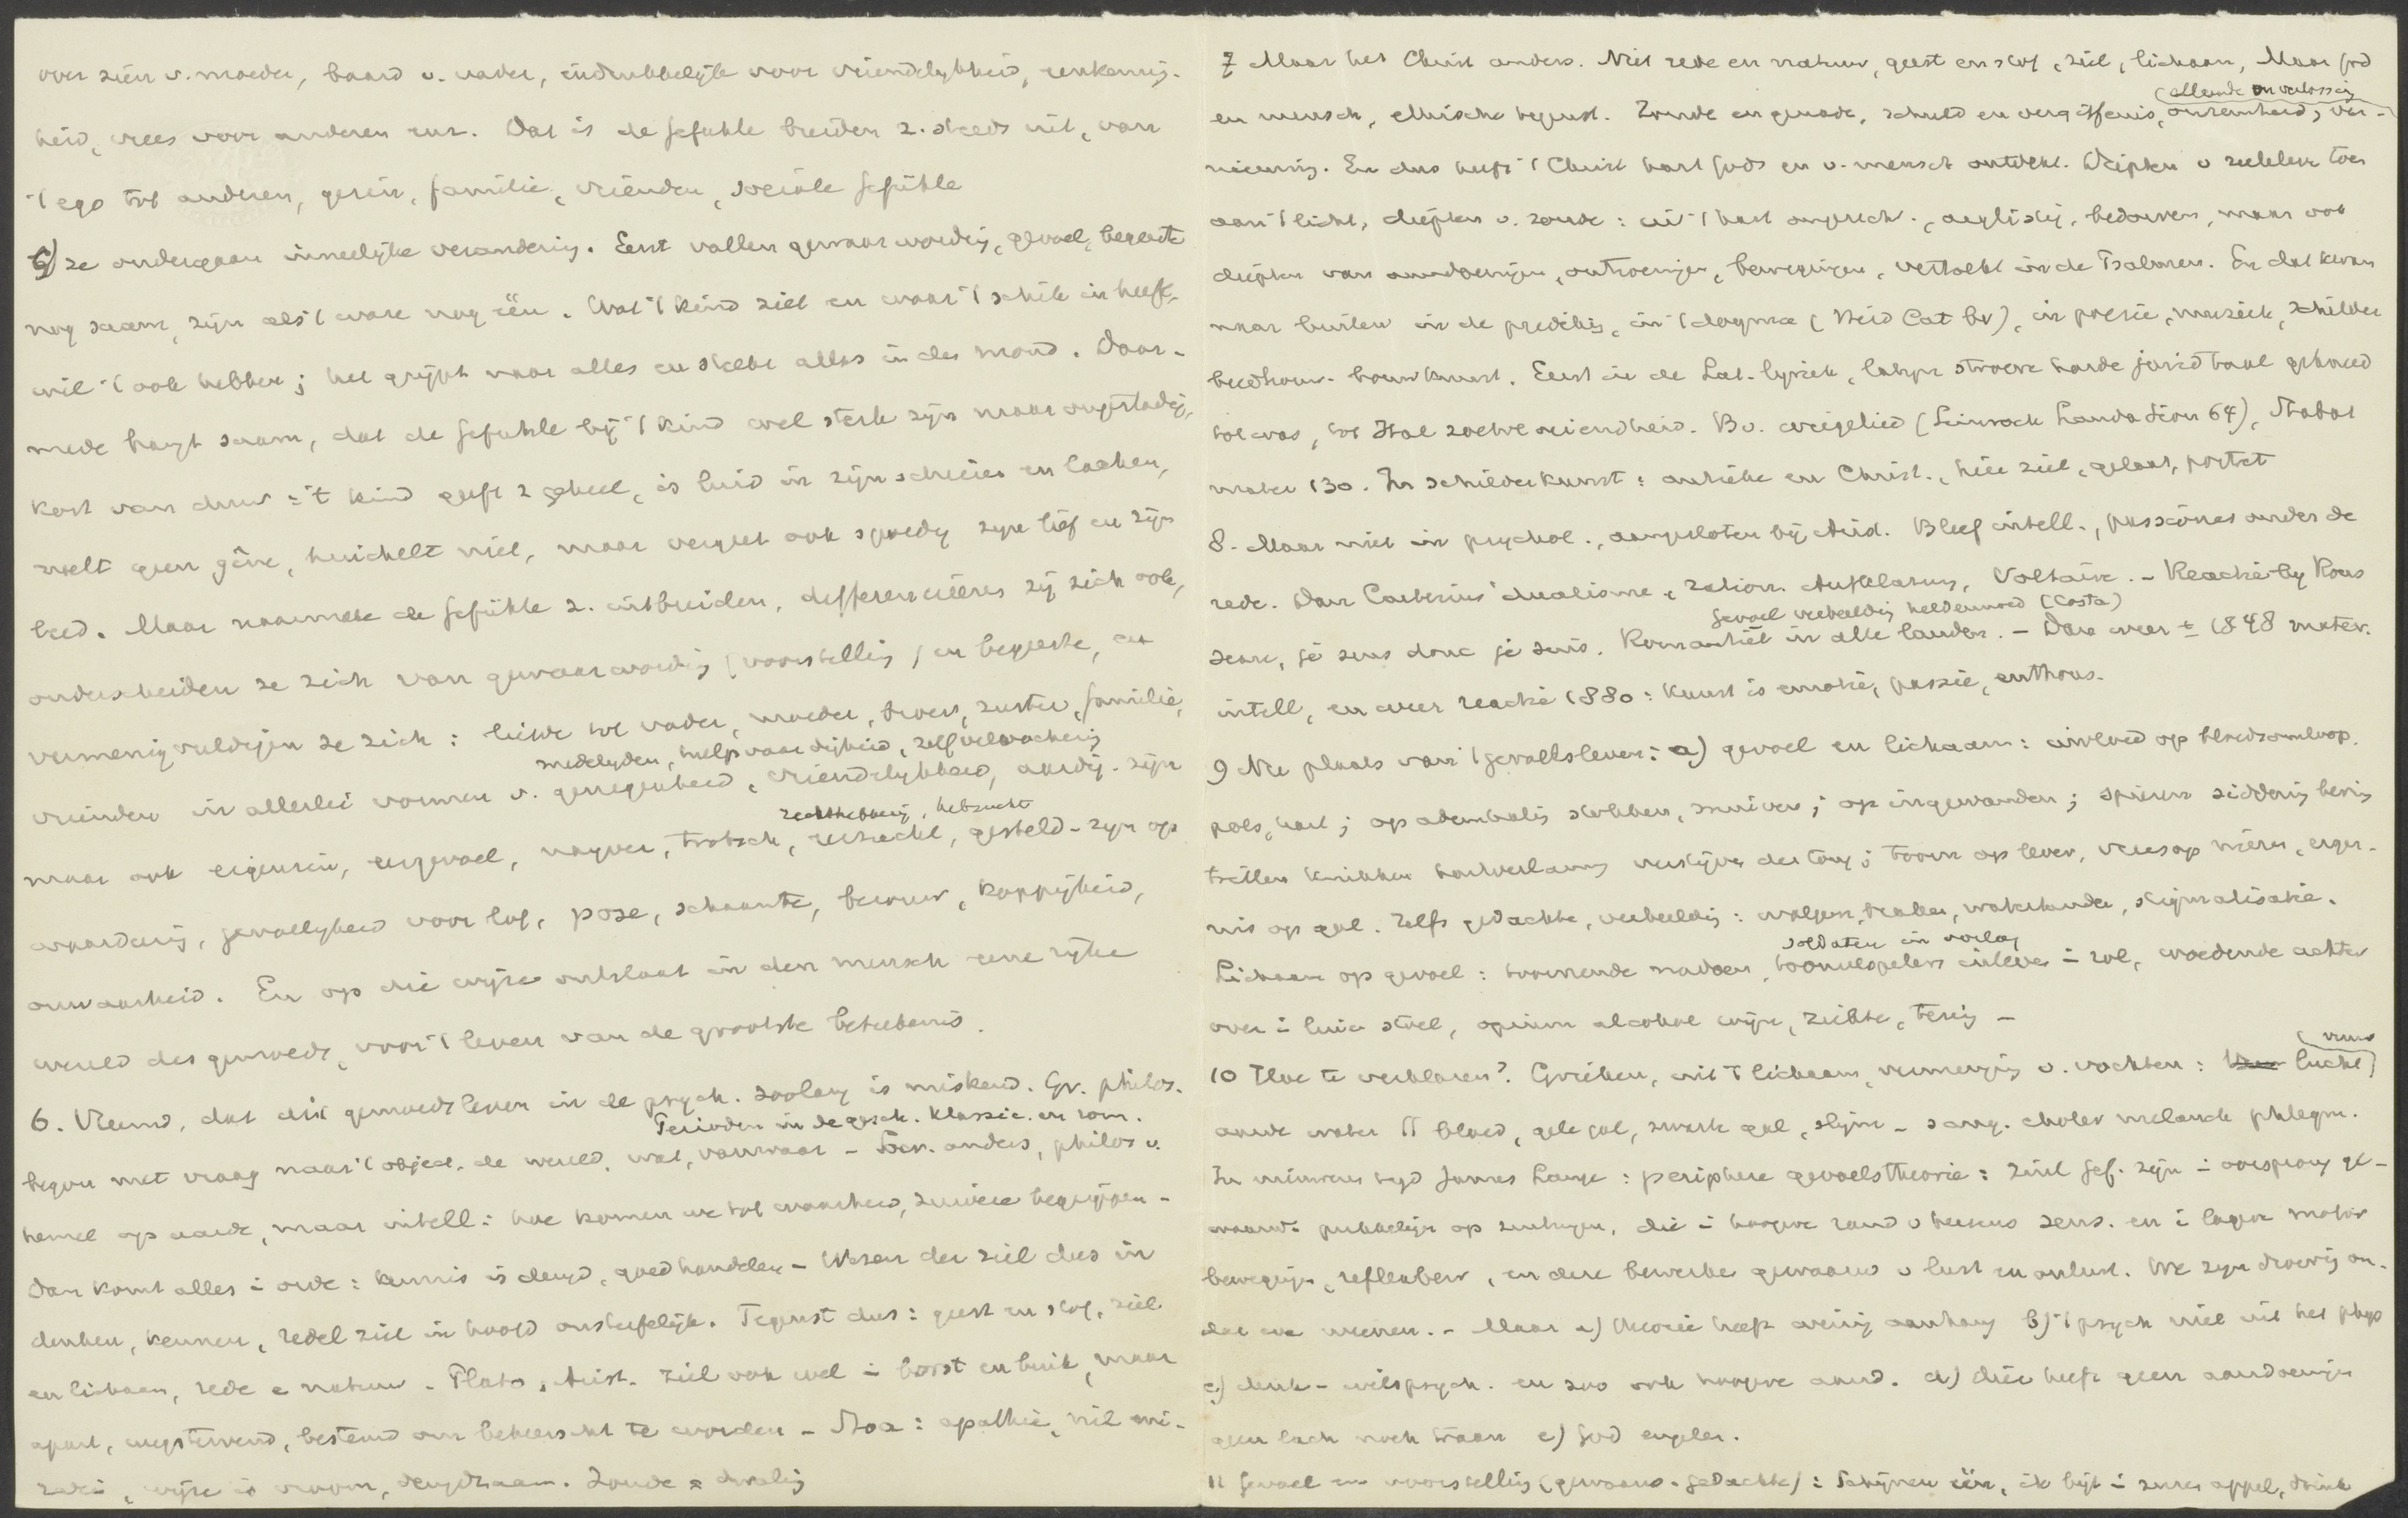 over zien v. moeder, baard v. vader, indrukkelijk voor vriendelijkheid, eenkennig-
heid, vrees voor anderen enz. Dat is de gefühle breiden z. steeds uit, van
't ego tot anderen, gezin, familie, vrienden, sociale gefühle
6) ze ondergaan innerlijke verandering. Eerst vallen gewaarwording, gevoel, begeerte
nog saam, zijn als 't ware nog één. Wat 't kind ziet en waar 't schik in heeft,
wil 't ook hebben; het grijpt naar alles en steekt alles in den mond. Daar-
mede hangt saam, dat de gefühle bij 't kind wel sterk zijn maar ongestadig,
kort van duur: 't kind geeft z geheel, is luid in zijn schreien en lachen,
speelt geen gêne, huichelt niet, maar vergeet ook spoedig zijn lief en zijn
leed. Maar naarmate de gefühle z. uitbreiden, differencieeren zij zich ook,
onderscheiden ze zich van gewaarwording (voorstelling) en begeerte, en
vermenigvuldigen ze zich: liefde tot vader, moeder, broers, zuster, familie,
medelijden, hulpvaardigheid, zelfverloochening
vrienden in allerlei vormen v. genegenheid, vriendelijkheid, aardig-zijn
rechthebberij, hebzucht
maar ook eigenzin, eergevoel, nayver, trotsch, heerszucht, gesteld-zijn op
waardering, gevoeligheid voor lof, pose, schaamte, berouw, koppigheid,
onwaarheid. En op die wijze ontstaat in den mensch eene rijke
wereld des gemoeds, voor 't leven van de grootste beteekenis.
6. Vreemd, dat dit gemoedsleven in de psych. zoolang is miskend. Gr. philos.
Perioden in de gesch. klassic. en rom.
begon met vraag naar 't object, de wereld, wat, vanwaar - Socr. anders, philos v.
hemel op aarde, maar intell: hoe komen we tot waarheid, zuivere begrippen -
dan komt alles i orde: kennis is deugd, goed handelen - Wezen der ziel dus in
denken, kennen, redel ziel in hoofd onsterfelijk. Tegenst dus: geest en stof, ziel
en lichaam, rede e natuur - Plato, Arist. ziel ook wel i borst en buik, maar
apart, wegstervend, bestemd om beheerscht te worden - Stoa: apathie, nil mi-
rari, wijze is vroom, deugdzaam. Zonde = dwaling
7 Maar het Christ anders. Niet rede en natuur, geest en stof, ziel, lichaam, Maar God
(ellende en verlossing
en mensch, ethische tegenst. Zonde en genade, schuld en vergiffenis, onreinheid, ver-
nieuwing. En dus heeft 't Christ hart Gods en v. mensch ontdekt. Diepten v zieleleven toen
aan 't licht, diepten v. zonde: uit 't hart ongerecht., arglistig, bedorven, maar ook
diepten van aandoeningen, ontroeringen, bewegingen, vertolkt in de Psalmen. En dat kwam
naar buiten in de prediking, in 't dogma (Heid Cat bv), in poezie, muziek, schilder
beeldhouw- bouwkunst. Eerst in de Lat. lyriek, Latijn stroeve harde jurid taal gekneed
tot was, tot Ital zoetvloeiendheid. Bv. wiegelied (Lauda Sion 64), Stabat
mater 130. In schilderkunst: antieke en Christ., hier ziel, gelaat, portret
8. Maar niet in psychol., aangesloten bij Arist. Bleef intell., passiones onder de
rede. Dan Cartesius' dualisme, ration. Aufklärung, Voltaire. - Reactie by Rous
gevoel verbeelding heldenmoed (Costa)
seau, je sens donc je suis. Romantiek in alle landen. - Dan weer ± 1848 mater.
intell, en weer reactie 1880: kunst is emotie, passie, enthous.
9 De plaats van 't gevoelsleven: a) gevoel en lichaam: invloed op bloedsomloop,
pols, hart; op ademhaling stokken, snuiven; op ingewanden; spieren siddering beving
trillen knikken verlamming verstijven der tong; toorn op lever, vrees op nieren, erger-
nis op gal. Zelfs gedachte, verbeelding: walgen, braken, watertanden, stigmatisatie.
soldaten in oorlog
Lichaam op gevoel: toornende nadoen, tooneelspelers inleven i rol, woedende achter
over i luie stoel, opium alcohol wijn, ziekte, tering -
(vuur
10 Hoe te verklaren? Grieken, uit 't lichaam, vermenging v. vochten: lucht)
aarde water || bloed, gele gal, zwarte gal, slijm - sang. choler melanch phlegm.
In nieuwere tijd James Lange: periphere gevoelstheorie: ziel gef. zijn i oorsprong ge-
waarw. prikkelijn op zenuwen, die i hoogere rand v hersens sens. en i lagere motor
bewegingen, reflexbew, en deze bewerken gewaarw v lust en onlust. We zijn droevig om-
dat we weenen. - Maar a) theorie heeft weinig aanhang b) 't psych niet uit het phys
c) denk- wilspsych. en zoo ook hoogere aand. d) dier heeft geen aandoeningen
geen lach noch traan e) God engelen.
11 Gevoel en voorstelling (gewaarw. gedachte): schijnen één, ik bijt i zuren appel, drink